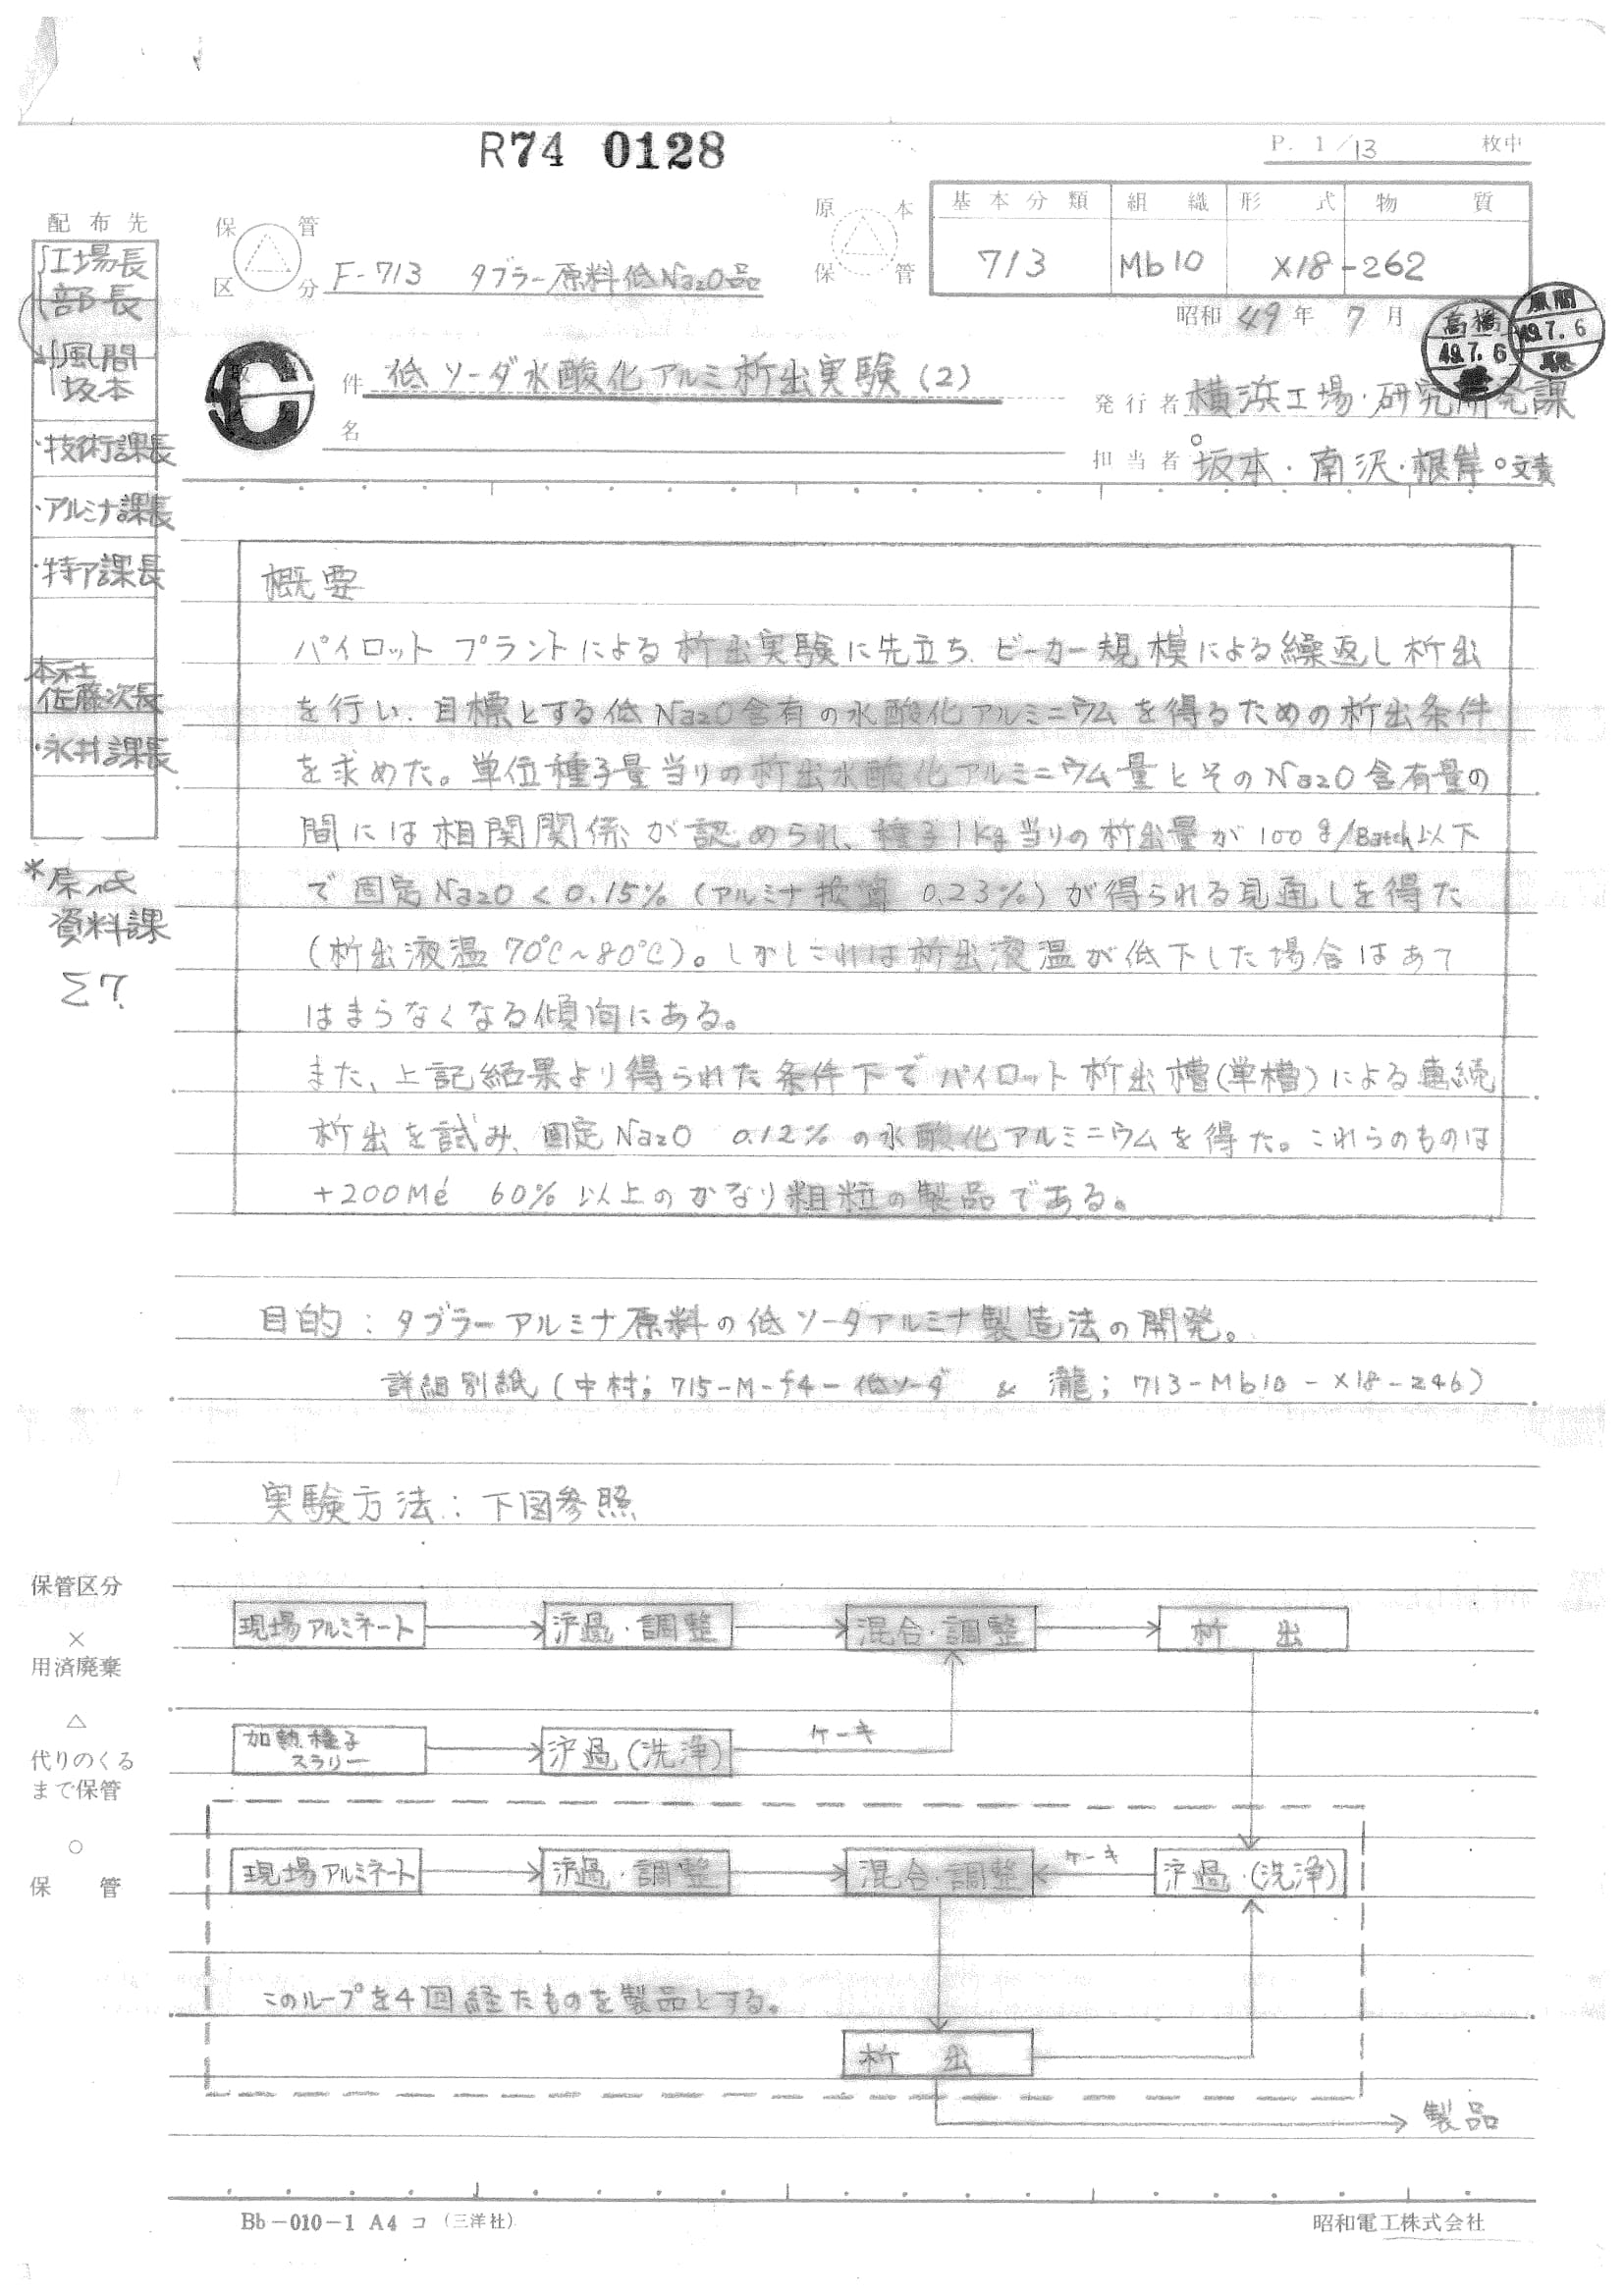 R74 0128
P. 1/13 枚中
配布先
工場長
部長
風間
坂本
・技術課長
・アルミナ課長
・特ア課長
本社
佐藤次長
・永井課長
*原紙
資料課
Σ7
保管
区分
F-713 タブラー原料低Na2O品
原本
保管
基本分類 組織 形式 物質
713 Mb10 X18-262
昭和 49年 7月
高橋
49.7.6
風間
49.7.6
C
件名 低ソーダ水酸化アルミ析出実験(2)
発行者 横浜工場・研究所究課
担当者 坂本・南沢・根岸 ○文責
概要
パイロットプラントによる析出実験に先立ち、ビーカー規模による繰返し析出
を行い、目標とする低Na2O含有の水酸化アルミニウムを得るための析出条件
を求めた。単位種子量当りの析出水酸化アルミニウム量とそのNa2O含有量の
間には相関関係が認められ、種子1kg当りの析出量が100g/Batch以下
で固定Na2O<0.15%(アルミナ換算 0.23%)が得られる見通しを得た
(析出液温70℃~80℃)。しかしこれは析出液温が低下した場合はあて
はまらなくなる傾向にある。
また、上記結果より得られた条件下でパイロット析出槽(単槽)による連続
析出を試み、固定Na2O 0.12%の水酸化アルミニウムを得た。これらのものは
+200Mé 60%以上のかなり粗粒の製品である。
目的:タブラーアルミナ原料の低ソーダアルミナ製造法の開発。
詳細別紙(中村; 715-M-f4-低ソーダ & 瀧; 713-Mb10-X18-246)
実験方法:下図参照
現場アルミネート
沪過・調整
混合・調整
析出
加熱種子
スラリー
沪過(洗浄)
ケーキ
現場アルミネート
沪過・調整
混合・調整
ケーキ
沪過・(洗浄)
このループを4回経たものを製品とする。
析出
製品
保管区分
×
用済廃棄
△
代りのくる
まで保管
○
保管
Bb-010-1 A4 コ (三洋社)
昭和電工株式会社